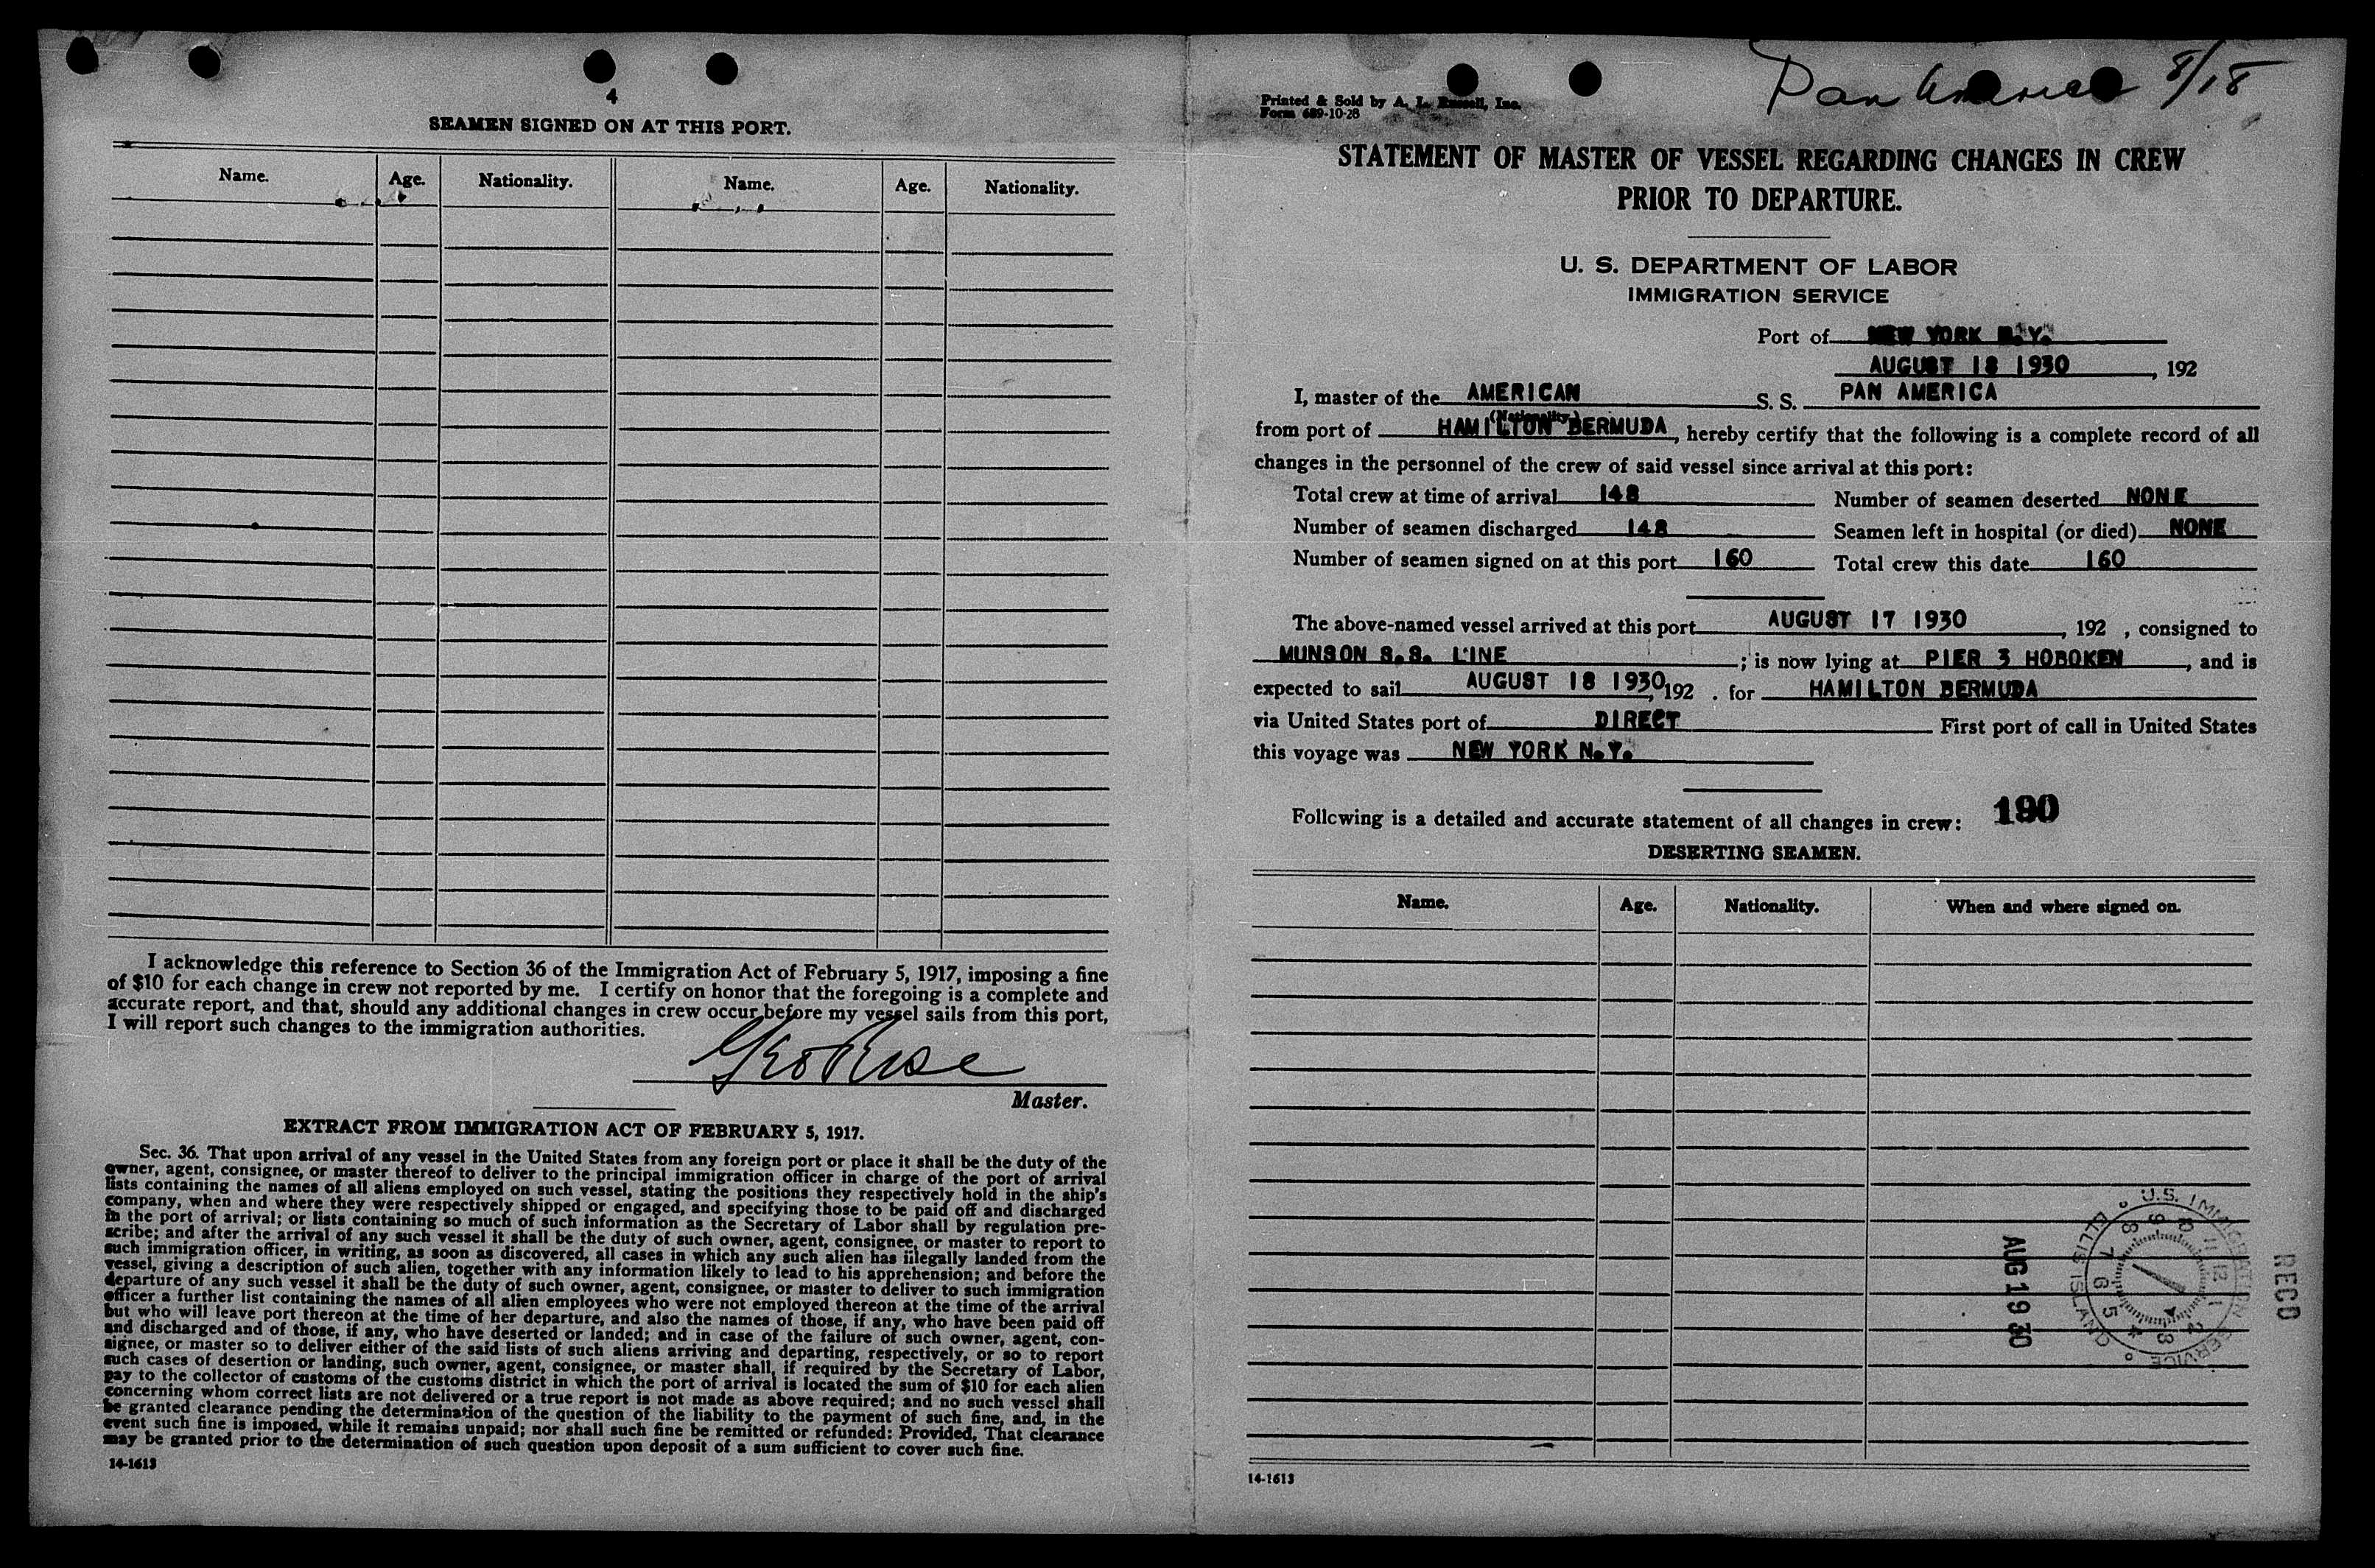 4
SEAMEN SIGNED ON AT THIS PORT.
Name. Age. Nationality. Name. Age. Nationality.
I acknowledge this reference to Section 36 of the Immigration Act of February 5, 1917, imposing a fine
of $10 for each change in crew not reported by me. I certify on honor that the foregoing is a complete and
accurate report, and that, should any additional changes in crew occur before my vessel sails from this port,
I will report such changes to the immigration authorities.
Geo Rose
Master.
EXTRACT FROM IMMIGRATION ACT OF FEBRUARY 5, 1917.
Sec. 36. That upon arrival of any vessel in the United States from any foreign port or place it shall be the duty of the
owner, agent, consignee, or master thereof to deliver to the principal immigration officer in charge of the port of arrival
lists containing the names of all aliens employed on such vessel, stating the positions they respectively hold in the ship's
company, when and where they were respectively shipped or engaged, and specifying those to be paid off and discharged
in the port of arrival; or lists containing so much of such information as the Secretary of Labor shall by regulation pre-
scribe; and after the arrival of any such vessel it shall be the duty of such owner, agent, consignee, or master to report to
such immigration officer, in writing, as soon as discovered, all cases in which any such alien has illegally landed from the
vessel, giving a description of such alien, together with any information likely to lead to his apprehension; and before the
departure of any such vessel it shall be the duty of such owner, agent, consignee, or master to deliver to such immigration
officer a further list containing the names of all alien employees who were not employed thereon at the time of the arrival
but who will leave port thereon at the time of her departure, and also the names of those, if any, who have been paid off
and discharged and of those, if any, who have deserted or landed; and in case of the failure of such owner, agent, con-
signee, or master so to deliver either of the said lists of such aliens arriving and departing, respectively, or so to report
such cases of desertion or landing, such owner, agent, consignee, or master shall, if required by the Secretary of Labor,
pay to the collector of customs of the customs district in which the port of arrival is located the sum of $10 for each alien
concerning whom correct lists are not delivered or a true report is not made as above required; and no such vessel shall
be granted clearance pending the determination of the question of the liability to the payment of such fine, and, in the
event such fine is imposed, while it remains unpaid; nor shall such fine be remitted or refunded: Provided, That clearance
may be granted prior to the determination of such question upon deposit of a sum sufficient to cover such fine.
14-1613
Pan America 8/18
Printed & Sold by A. L. Russell, Inc.
Form 689-10-28
STATEMENT OF MASTER OF VESSEL REGARDING CHANGES IN CREW
PRIOR TO DEPARTURE.
U. S. DEPARTMENT OF LABOR
IMMIGRATION SERVICE
Port of NEW YORK N.Y.
AUGUST 18 1930, 192
I, master of the AMERICAN S. S. PAN AMERICA
(Nationality)
from port of HAMILTON BERMUDA, hereby certify that the following is a complete record of all
changes in the personnel of the crew of said vessel since arrival at this port:
Total crew at time of arrival 148 Number of seamen deserted NONE
Number of seamen discharged 148 Seamen left in hospital (or died) NONE
Number of seamen signed on at this port 160 Total crew this date 160
The above-named vessel arrived at this port AUGUST 17 1930, 192 , consigned to
MUNSON S.S. LINE; is now lying at PIER 3 HOBOKEN, and is
expected to sail AUGUST 18 1930, 192 . for HAMILTON BERMUDA
via United States port of DIRECT First port of call in United States
this voyage was NEW YORK N.Y.
Following is a detailed and accurate statement of all changes in crew: 190
DESERTING SEAMEN.
Name. Age. Nationality. When and where signed on.
U.S. IMMIGRATION SERVICE ELLIS ISLAND
12 1 2 3 4 5 6 7 8 9 10 11
AUG 19 30
RECD
14-1613